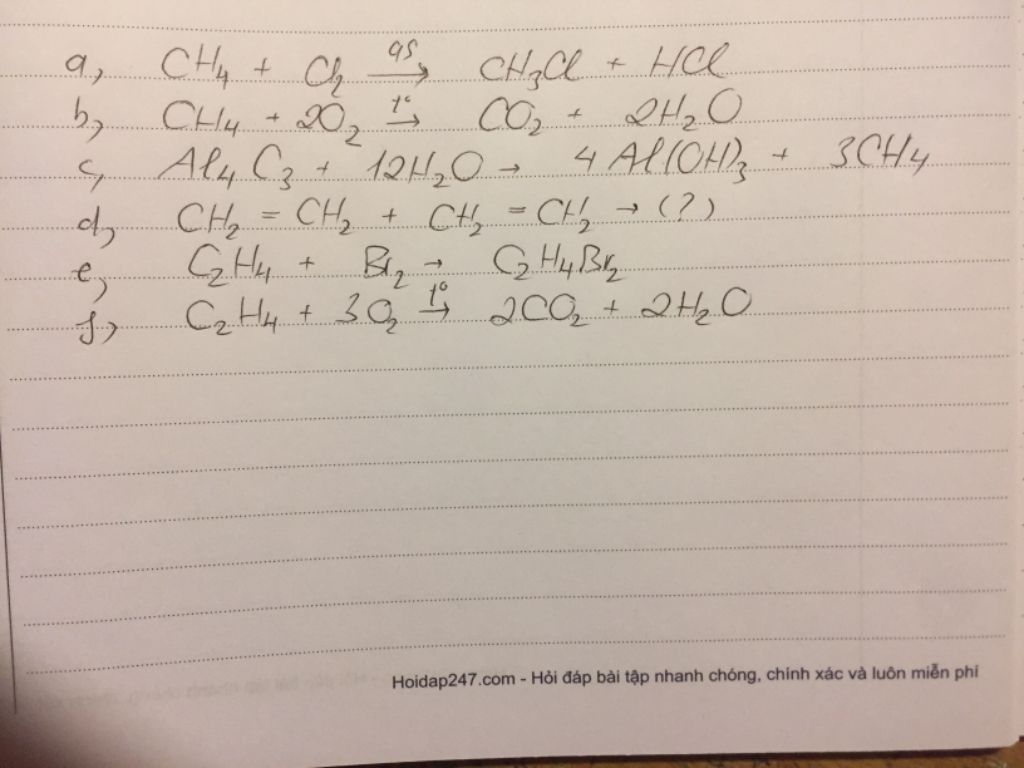 a, CH₄ + Cl₂ –as→ CH₃Cl + HCl
b, CH₄ + 2O₂ –t°→ CO₂ + 2H₂O
c, Al₄C₃ + 12H₂O → 4Al(OH)₃ + 3CH₄
d, CH₂ = CH₂ + CH₂ = CH₂ → (?)
e, C₂H₄ + Br₂ → C₂H₄Br₂
f, C₂H₄ + 3O₂ –t°→ 2CO₂ + 2H₂O
Hoidap247.com - Hỏi đáp bài tập nhanh chóng, chính xác và luôn miễn phí